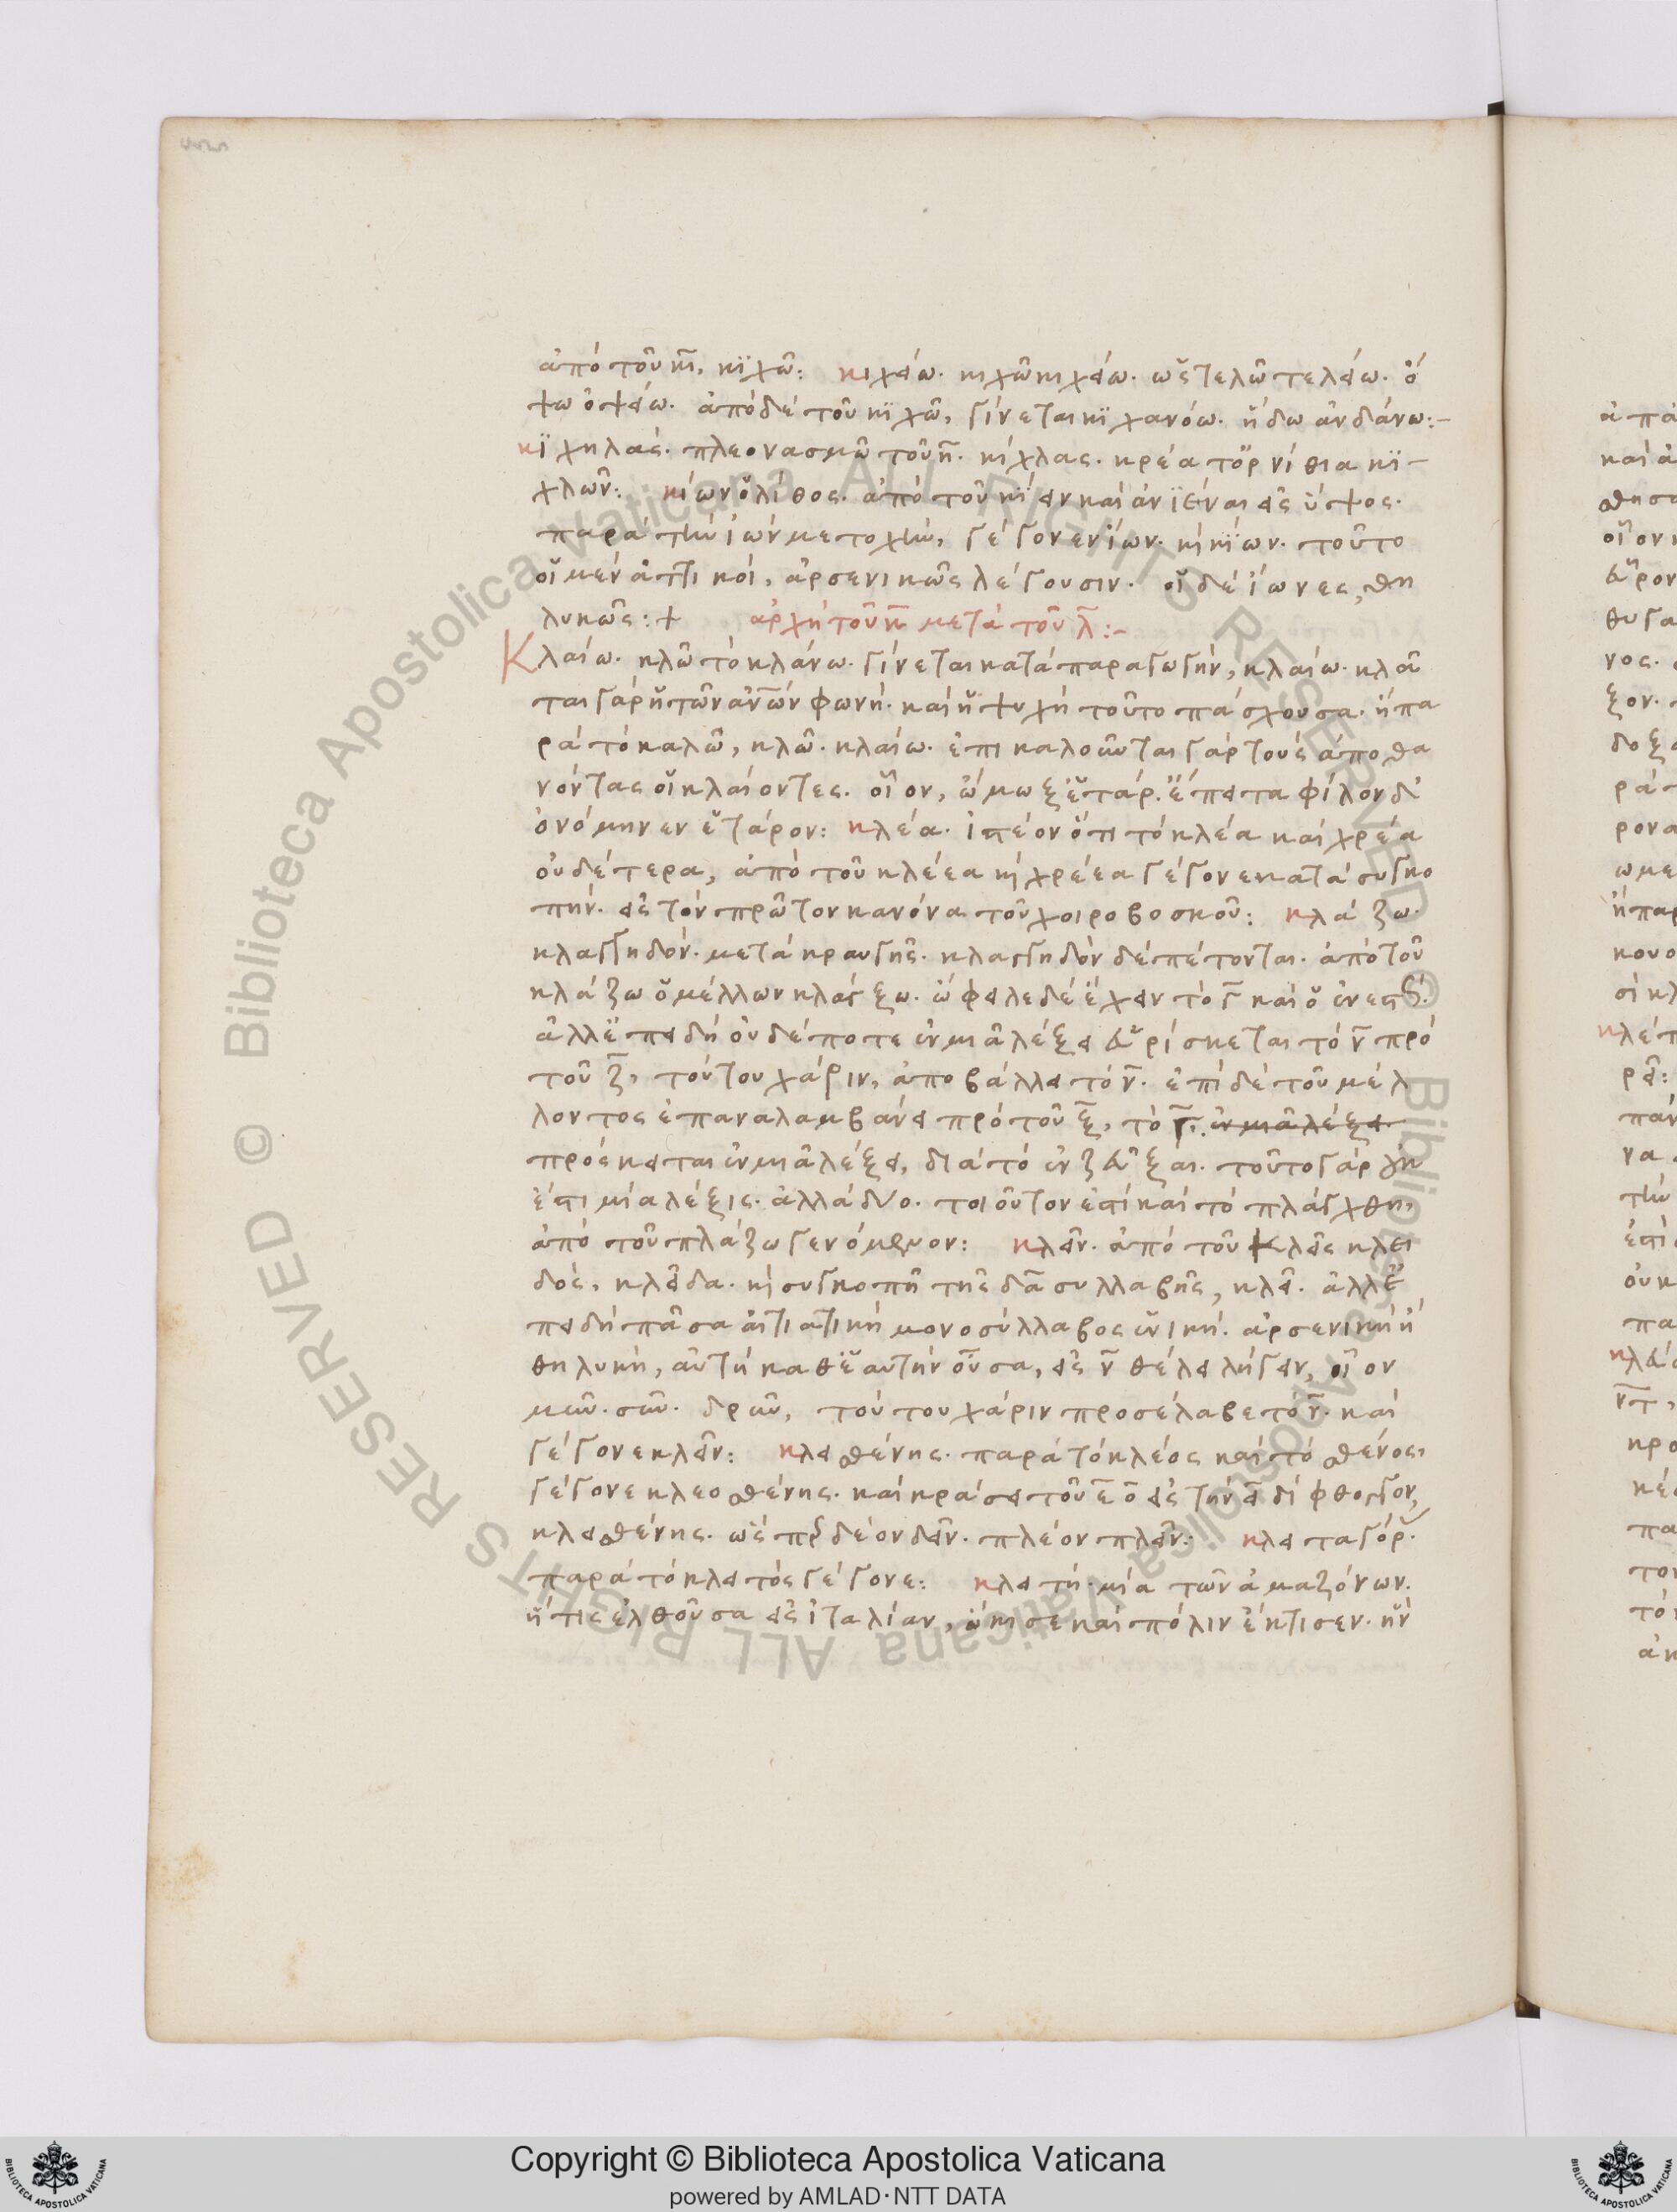 ἀπὸ τοῦ κῖ, κϊχῶ: κιχείω. κιχῶ κιχείω. ὡς τελῶ τελείω. ὄ
ψω ὀψείω. ἀπὸ δὲ τοῦ κϊχῶ, γίνεται κϊχανόω. ἥδω ἁνδάνω:-
κϊχηλάς. πλεονασμῶ τοῦ η̄. κίχλας. κρέα τ' ὀρνίθια κϊ-
χλῶν: κίων ὁ λίθος. ἀπὸ τοῦ κίειν καὶ ἀνϊέναι εἰς ὕψος.
παρὰ τὴν ἰὼν μετοχὴν, γέγονεν ΐων. κὶ κΐων. τοῦτο
οἱ μὲν ἀττικοὶ, ἀρσενικῶς λέγουσιν. οἱ δὲ ἴωνες, θη
λυκῶς: + ἀρχὴ τοῦ κ̄ μετὰ τοῦ λ̄:-
Κλαίω. κλῶ τὸ κλάνω. γίνεται κατὰ παραγωγὴν, κλαίω. κλᾶ
ται γὰρ ἡ τῶν ἀν̅ων φωνή. καὶ ἡ ψυχὴ τοῦτο πάσχουσα. ἢ πα
ρὰ τὸ καλῶ, κλῶ. κλαίω. ἐπικαλοῦνται γὰρ τοὺς ἀποθα
νόντας οἱ κλαίοντες. οἷον, ᾤμωξέ τ' ἄρ. ἔπειτα φίλον δ'
ὀνόμηνεν ἑταρον: κλέα. ἰστέον ὅτι τὸ κλέα καὶ χρέα
οὐδέτερα, ἀπὸ τοῦ κλέεα κὶ χρέεα γέγονε κατὰ συγκο
πήν. εἰς τὸν πρῶτον κανόνα τοῦ χοιροβοσκοῦ: κλάζω.
κλαγγηδόν. μετὰ κραυγῆς. κλαγγηδὸν δὲ πέτονται. ἀπὸ τοῦ
κλάζω ὁ μέλλων κλάγξω. ὤφειλε δὲ ἔχειν τὸ γ̄ καὶ ὁ ἐνεστ.
ἀλλ' ἐπειδὴ οὐδέποτε ἐν μιᾶ λέξει εὑρίσκεται τὸ ν̄ πρὸ
τοῦ ζ̄, τούτου χάριν, ἀποβάλλει τὸ ν̄. ἐπὶ δὲ τοῦ μέλ
λοντος ἐπαναλαμβάνει πρὸ τοῦ ξ̄, τὸ γ̄. ἐν μιᾶ λέξει
πρόσκειται ἐν μιᾶ λέξει, διὰ τὸ ἐν ζεῦξαι. τοῦτο γὰρ οὐκ
ἔστι μία λέξις. ἀλλὰ δύο. τοιοῦτον ἐστὶ καὶ τὸ πλάγχθη,
ἀπὸ τοῦ πλάζω γενόμενον: κλεῖν. ἀπὸ τοῦ κλεὶς κλει
δὸς, κλεῖδα. κὶ συγκοπῆ τῆς δᾱ συλλαβῆς, κλεῖ. ἀλλ' ἐ
πειδὴ πᾶσα αἰτιατικὴ μονοσύλλαβος ἑνική. ἀρσενικὴ ἢ
θηλυκὴ, αὐτὴ καθ' ἑαυτὴν οὖσα, εἰς ν̄ θέλει λήγειν, οἷον
μῦν. σῦν. δρῦν, τούτου χάριν προσέλαβε τὸ ν̄. καὶ
γέγονε κλεῖν: κλεισθένης. παρὰ τὸ κλέος καὶ τὸ σθένος,
γέγονε κλεοσθένης. καὶ κράσει τοῦ ε̄ ο̄ εἰς τὴν εῑ δίφθογγον,
κλεισθένης. ὡς πρ δέον δεῖν. πλέον πλεῖν: κλειταγόρ.
παρὰ τὸ κλειτὸς γέγονε: κλειτή. μία τῶν ἀμαζόνων.
ἥτις ἐλθοῦσα εἰς ἰταλίαν, ᾤκησε καὶ πόλιν ἔκτισεν. ἣν
Copyright © Biblioteca Apostolica Vaticana
powered by AMLAD･NTT DATA